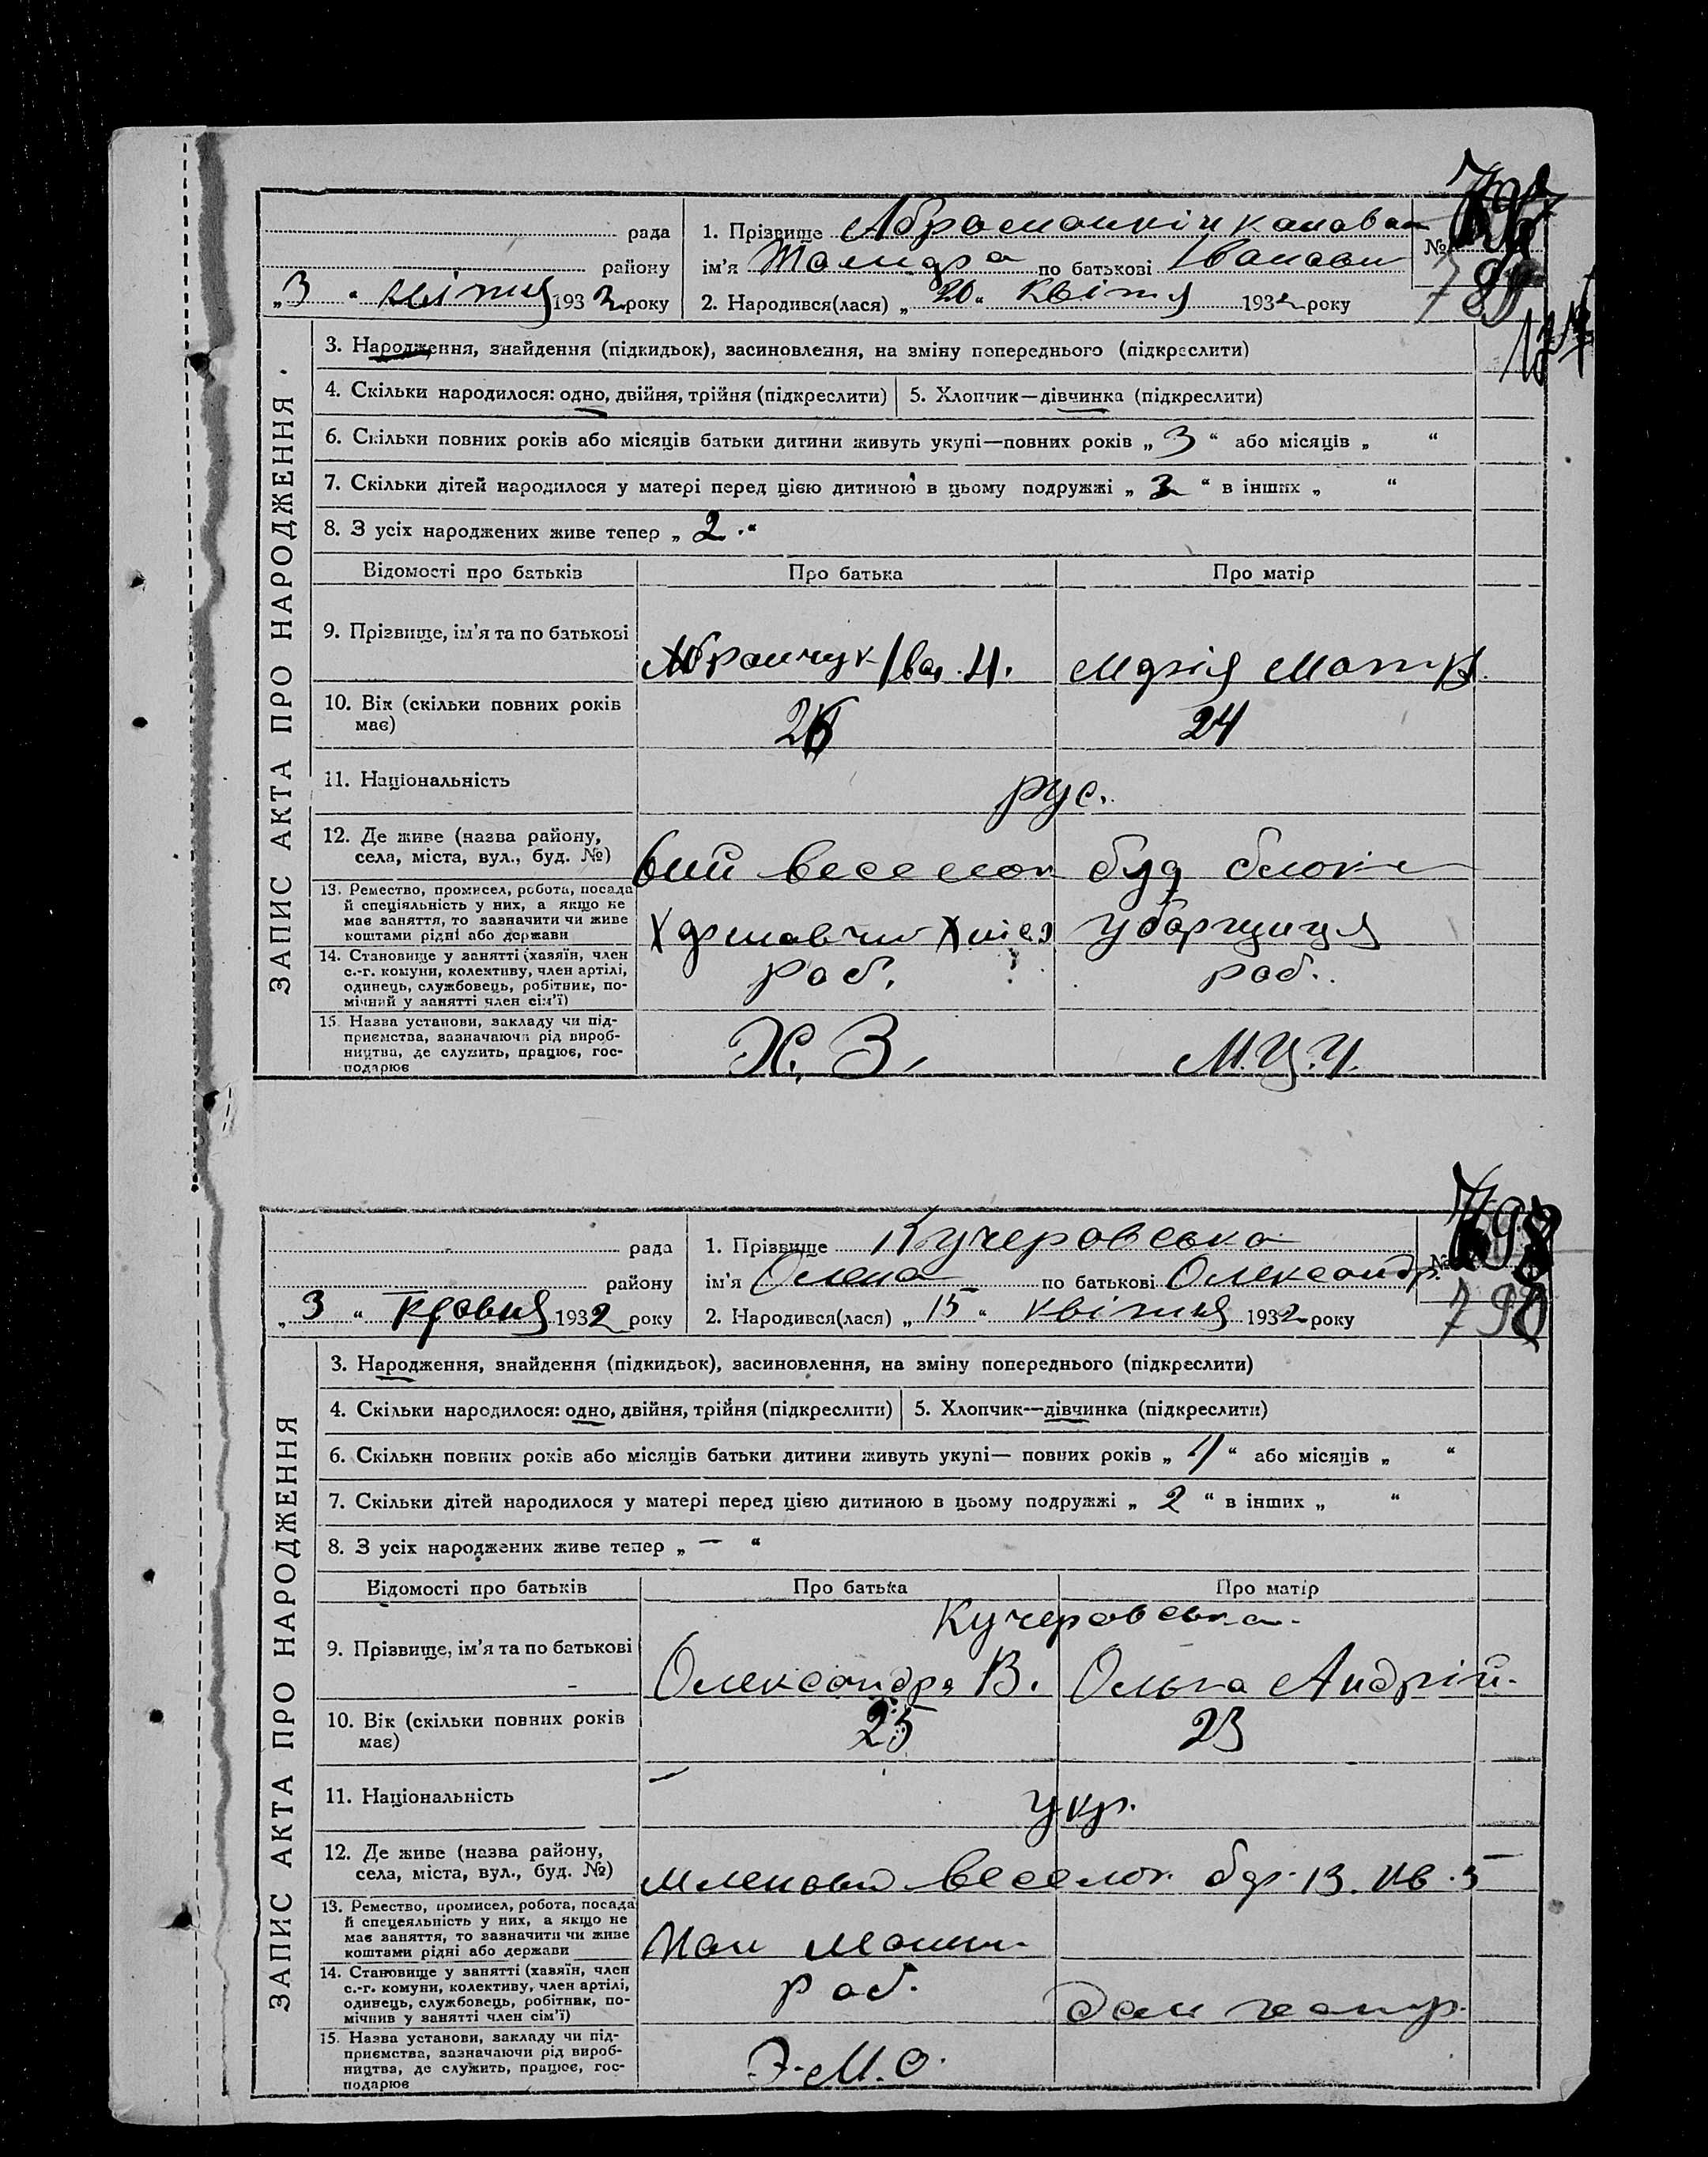 ЗАПИС АКТА ПРО НАРОДЖЕННЯ
рада
району
„3“ 1932 року
1. Прізвище
ім'я по батькові
2. Народився(лася) „20“ квітня 1932 року
№
3. Народження, знайдення (підкидьок), засиновлення, на зміну попереднього (підкреслити)
4. Скільки народилося: одно, двійня, трійня (підкреслити) 5. Хлопчик—дівчинка (підкреслити)
6. Скільки повних років або місяців батьки дитини живуть укупі—повних років „3“ або місяців „ “
7. Скільки дітей народилося у матері перед цією дитиною в цьому подружжі „ “ в інших „ “
8. З усіх народжених живе тепер „2.“
Відомості про батьків Про батька Про матір
9. Прізвище, ім'я та по батькові
Марія
10. Вік (скільки повних років
має)
24
11. Національність
рус.
12. Де живе (назва району,
села, міста, вул., буд. №)
буд
13. Ремество, промисел, робота, посада
й спеціяльність у них, а якщо не
має заняття, то зазначити чи живе
коштами рідні або держави
уборщиця
14. Становище у занятті (хазяїн, член
с.-г. комуни, колективу, член артілі,
одинець, службовець, робітник, по-
мічний у занятті член сім'ї)
роб. роб.
15. Назва установи, закладу чи під-
приємства, зазначаючи рід вироб-
ництва, де служить, працює, гос-
подарює
Х. З. М.Ц.У.
ЗАПИС АКТА ПРО НАРОДЖЕННЯ
рада
району
„3“ 1932 року
1. Прізвище Кучеровська
ім'я Олена по батькові Олександр.
2. Народився(лася) „15“ квітня 1932 року
№
798
3. Народження, знайдення (підкидьок), засиновлення, на зміну попереднього (підкреслити)
4. Скільки народилося: одно, двійня, трійня (підкреслити) 5. Хлопчик—дівчинка (підкреслити)
6. Скільки повних років або місяців батьки дитини живуть укупі— повних років „4“ або місяців „ “
7. Скільки дітей народилося у матері перед цією дитиною в цьому подружжі „2“ в інших „ “
8. З усіх народжених живе тепер „—“
Відомості про батьків Про батька Про матір
Кучеровська
9. Прізвище, ім'я та по батькові
Олександр В. Ольга Андрій.
10. Вік (скільки повних років
має)
25 23
11. Національність
укр.
12. Де живе (назва району,
села, міста, вул., буд. №)
веселок 13. кв. 5
13. Ремество, промисел, робота, посада
й спецеяльність у них, а якщо не
має заняття, то зазначити чи живе
коштами рідні або держави
14. Становище у занятті (хазяїн, член
с.-г. комуни, колективу, член артілі,
одинець, службовець, робітник, по-
мічнив у занятті член сім'ї)
роб.
15. Назва установи, закладу чи під-
приємства, зазначаючи рід вироб-
ництва, де служить, працює, гос-
подарює
Э.М.О.